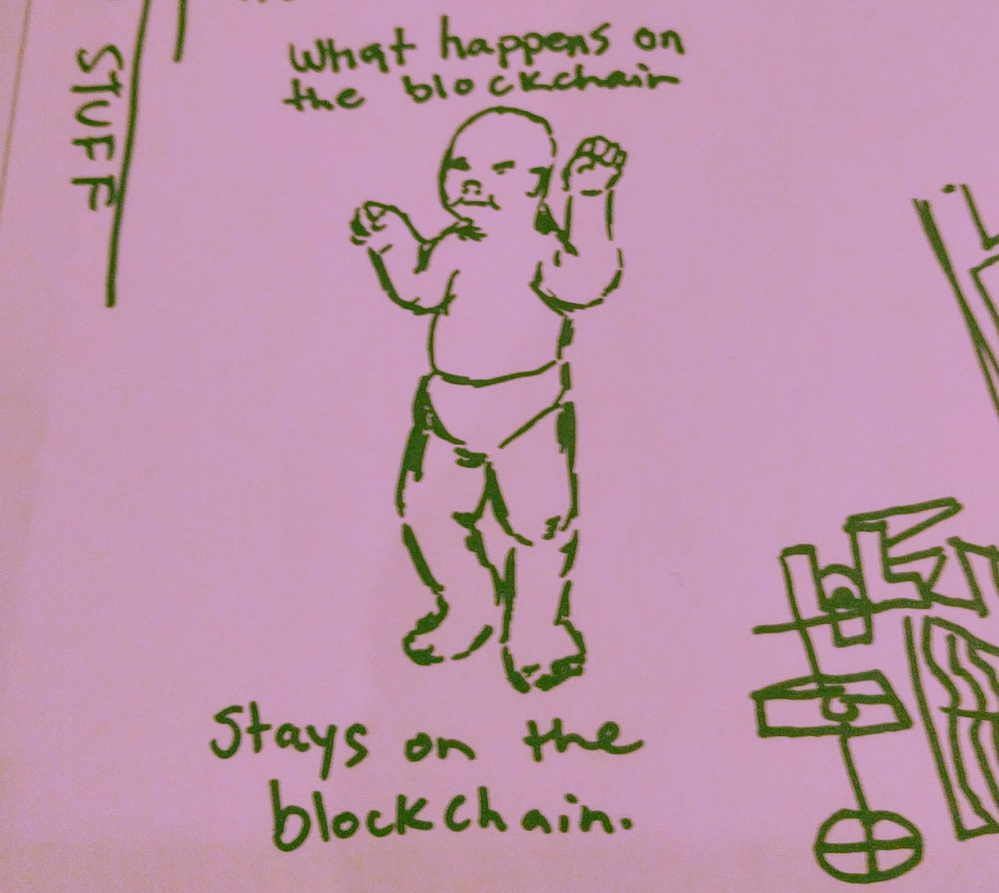 STUFF
What happens on
the blockchain
Stays on the
blockchain.